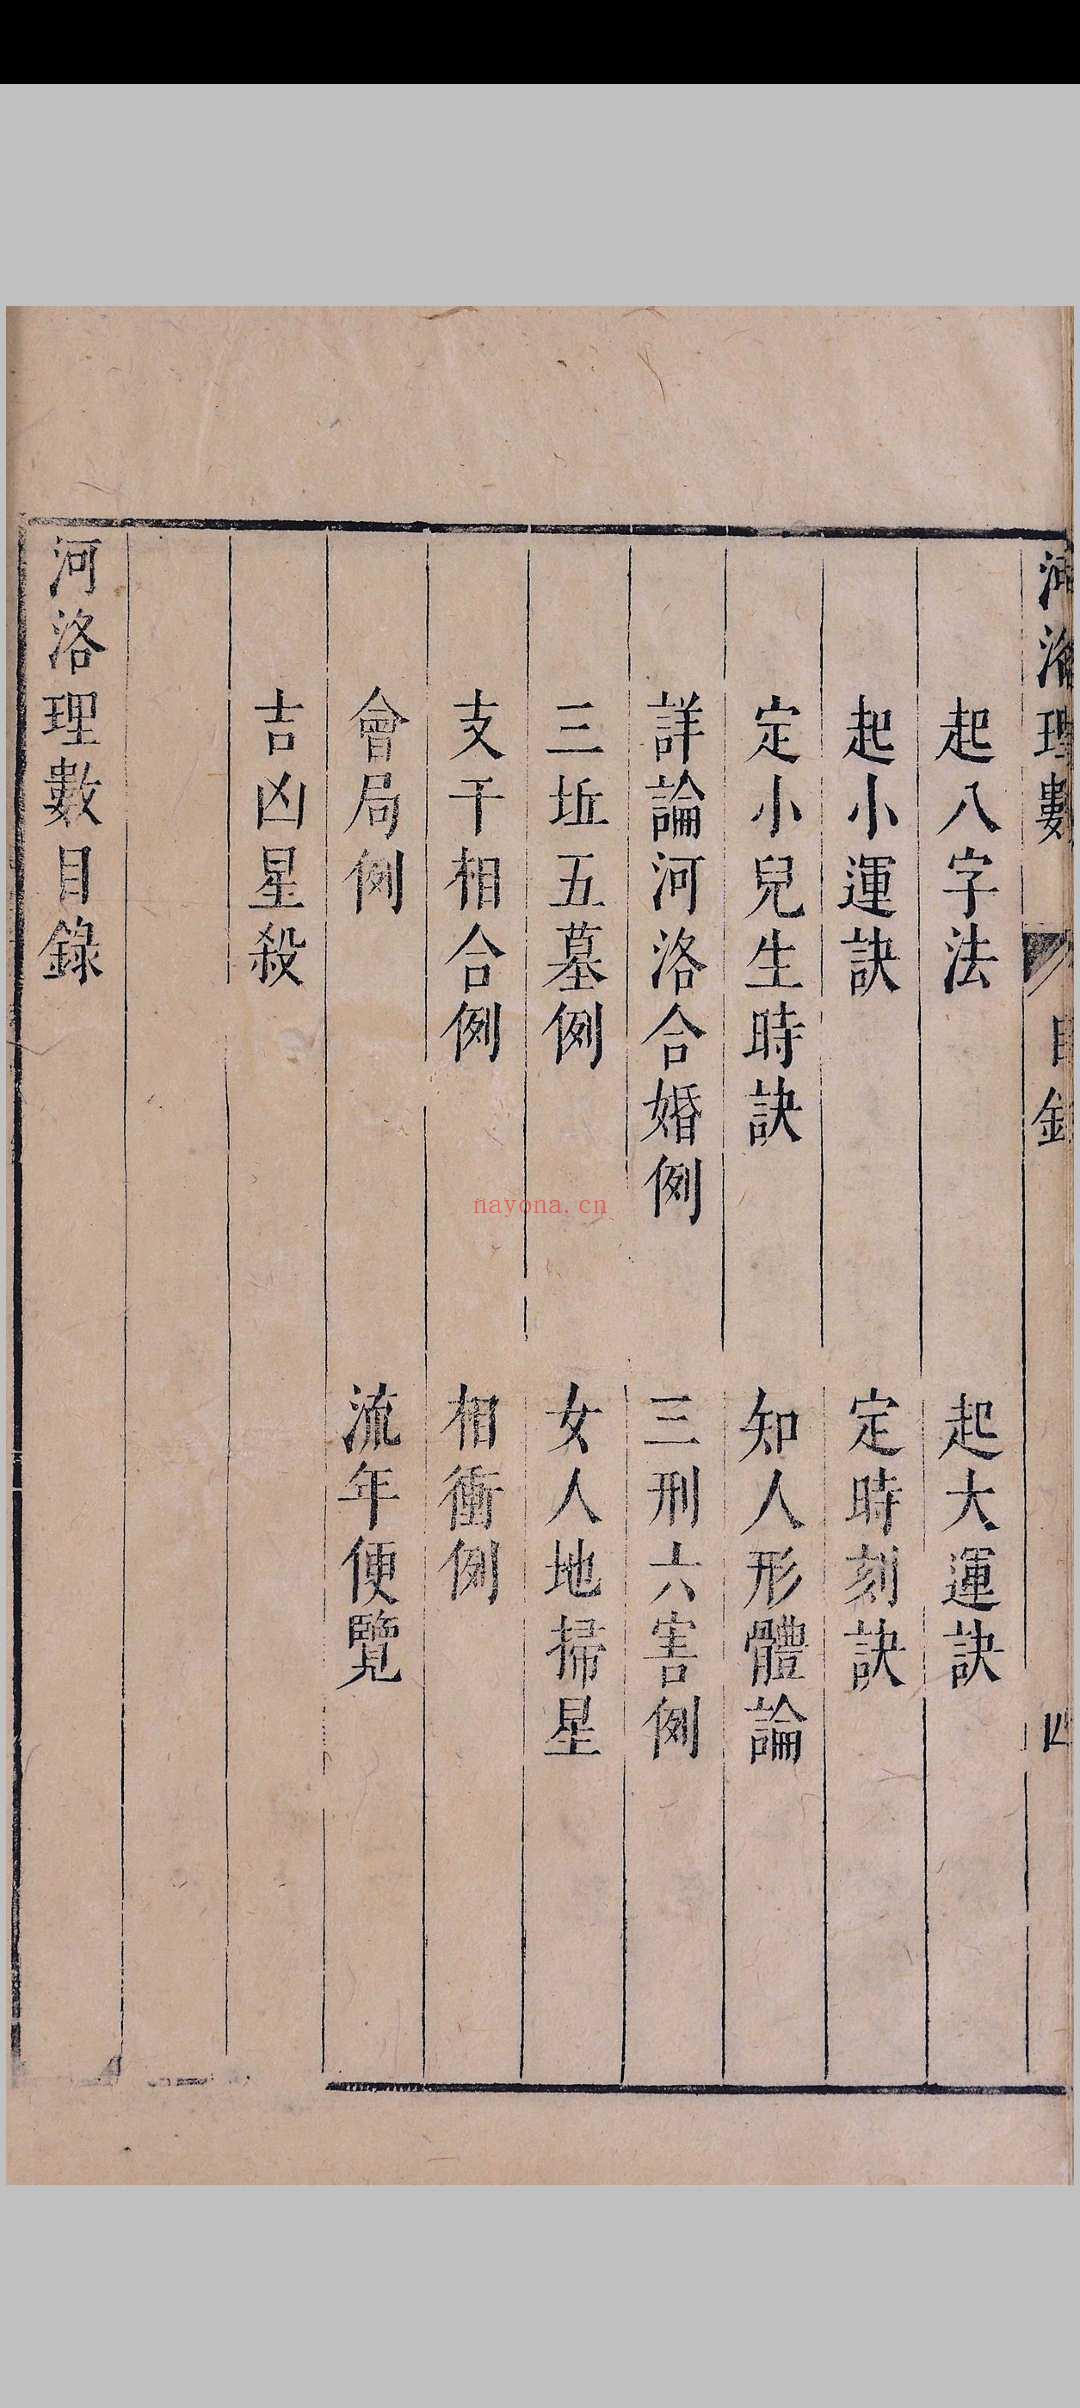 河洛理數 目錄 四
起八字法 起大運訣
起小運訣 定時刻訣
定小兒生時訣 知人形體論
詳論河洛合婚例 三刑六害例
三坵五墓例 女人地掃星
支干相合例 相衝例
會局例 流年便覽
吉凶星殺
河洛理數目錄
nayona.cn